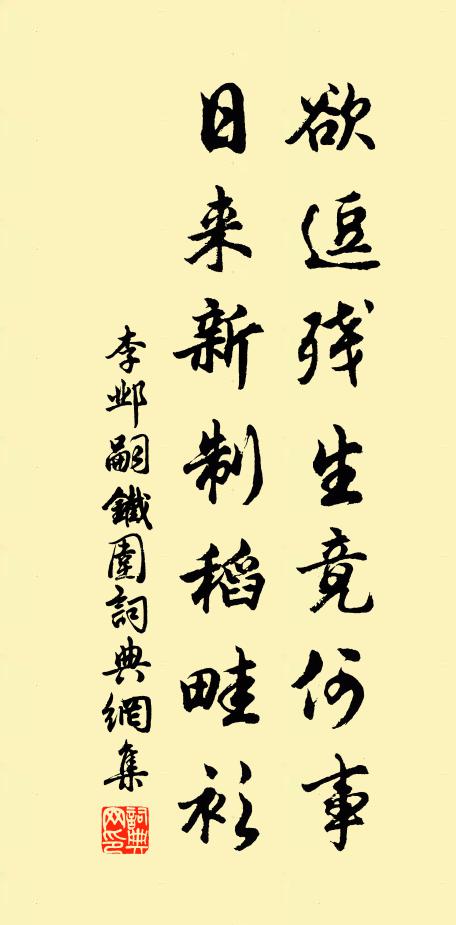 欲逗残生竟何事
日来新制稻畦衫
李邺嗣鐵圍詞典網集
詞典网印